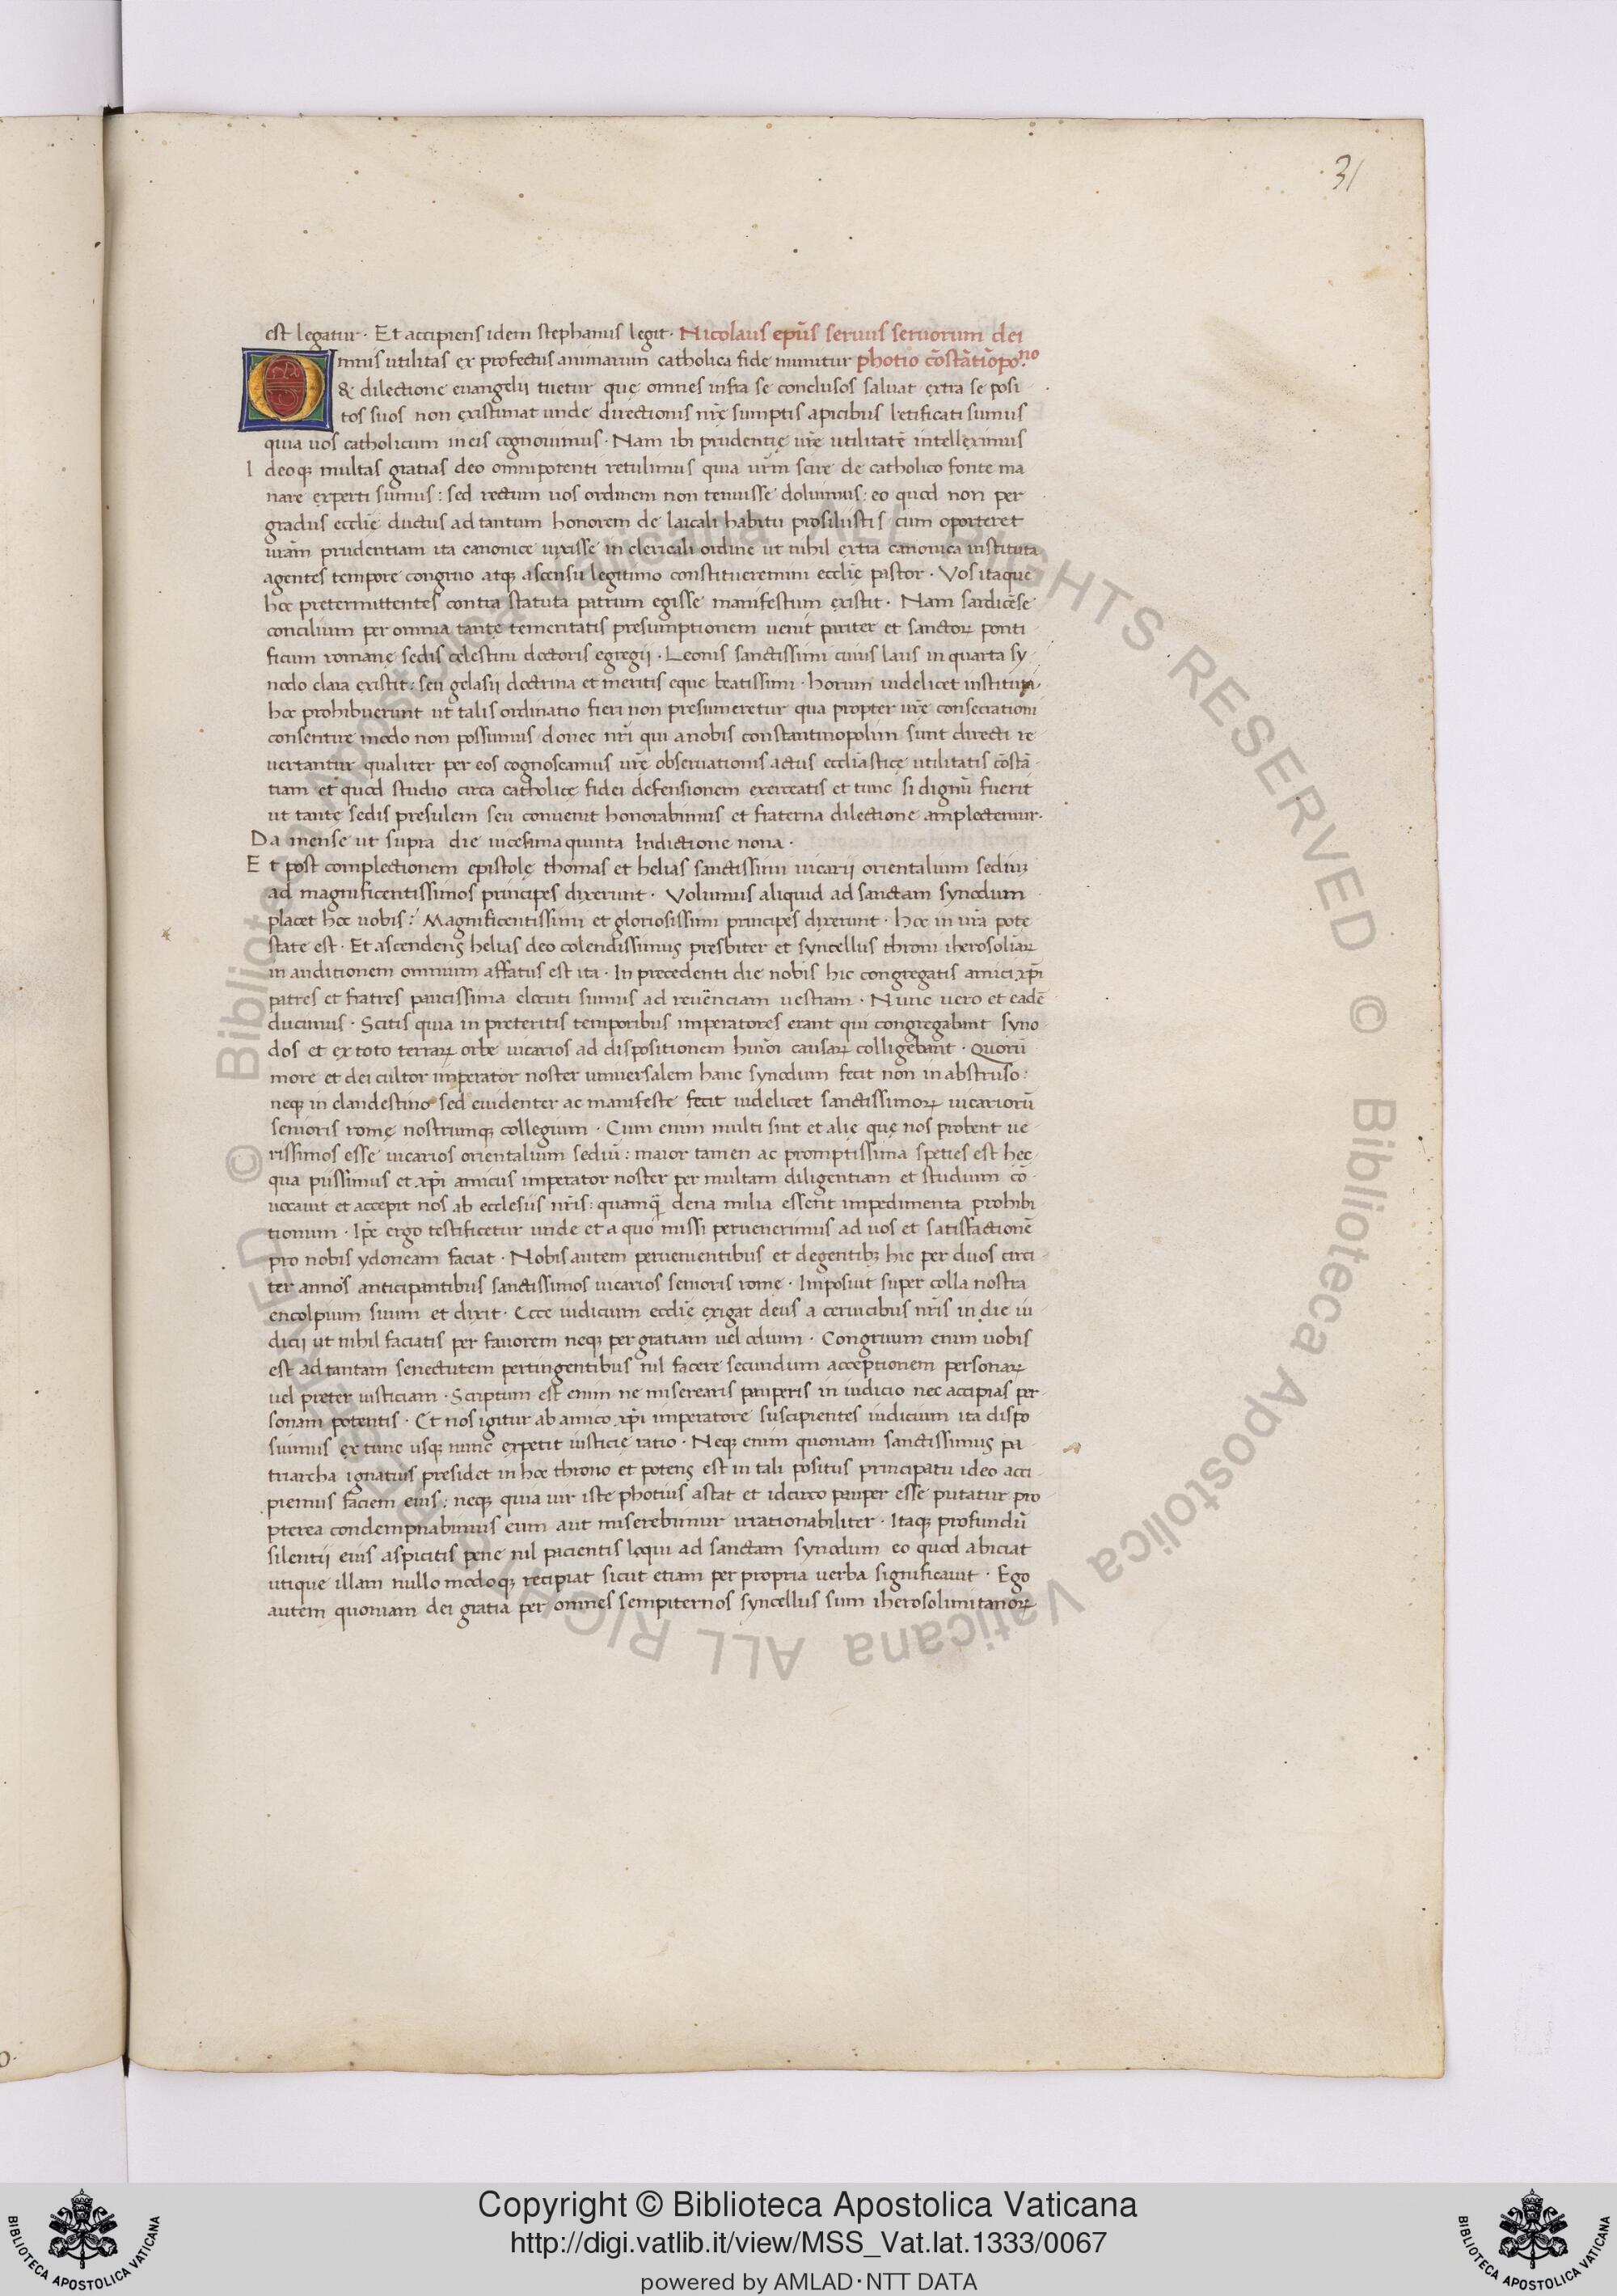 31
est legatur · Et accipiens idem stephanus legit · Nicolaus ep̄us seruus seruorum dei
Omnis utilitas ex profectus animarum catholica fide munitur photio cōstātiopo.no
& dilectione euangelii tuetur que omnes infra se conclusos saluat extra se posi
tos suos non existimat unde directionis nr̄e sumptis apicibus letificati sumus
quia uos catholicum in eis cognouimus · Nam ibi prudentię ur̄e utilitatē intelleximus
Ideoqꝫ multas gratias deo omnipotenti retulimus quia ur̄m scire de catholico fonte ma
nare experti sumus : sed rectum uos ordinem non tenuisse doluimus : eo quod non per
gradus eccl̄ie ductus ad tantum honorem de laicali habitu prosiluistis cum oporteret
ur̄am prudentiam ita canonice uixisse in clericali ordine ut nihil extra canonica instituta
agentes tempore congruo atqꝫ ascensu legitimo constitueremini eccl̄ie pastor · Vos itaque
hoc pretermittentes contra statuta patrum egisse manifestum existit · Nam sardicēse
concilium per omnia tantę temeritatis presumptionem uenit pariter et sanctoꝝ ponti
ficum romanę sedis celestini doctoris egregii · Leonis sanctissimi cuius laus in quarta sy
nodo clara existit : seu gelasii doctrina et meritis eque beatissimi · horum uidelicet instituta
hoc prohibuerunt ut talis ordinatio fieri non presumeretur qua propter ur̄e consecrationi
consentire modo non possumus donec nr̄i qui a nobis constantinopolim sunt directi re
uertantur qualiter per eos cognoscamus ur̄ę obseruationis actus eccl̄iasticę utilitatis cōstā
tiam et quod studio circa catholicę fidei defensionem exerceatis et tunc si dignū fuerit
ut tantę sedis presulem seu conuenit honorabimus et fraterna dilectione amplectemur.
Da mense ut supra die uicesima quinta Indictione nona ·
Et post complectionem epistolę thomas et helias sanctissimi uicarii orientalium sediuꝫ
ad magnificentissimos principes dixerunt · Volumus aliquid ad sanctam synodum
placet hoc uobis : Magnificentissimi et gloriosissimi principes dixerunt · hoc in ur̄a pote
state est · Et ascendens helias deo colendissimus presbiter et syncellus throni iherosoliāꝝ
in auditionem omnium affatus est ita · In precedenti die nobis hic congregatis amici xp̄i
patres et fratres paucissima elocuti sumus ad reuēnciam uestram · Nunc uero et eadē
ducimus · Scitis quia in preteritis temporibus imperatores erant qui congregabant syno
dos et ex toto terraꝝ orbe uicarios ad dispositionem hui᷒oi causaꝝ colligebant · Quorū
more et dei cultor imperator noster uniuersalem hanc synodum fecit non in abstruso :
neqꝫ in clandestino sed euidenter ac manifeste fecit uidelicet sanctissimoꝝ uicariorū
senioris romę nostrumqꝫ collegium · Cum enim multi sint et alie quę nos probent ue
rissimos esse uicarios orientalium sediū : maior tamen ac promptissima species est hec
qua piissimus et xp̄i amicus imperator noster per multam diligentiam et studium cō
uocauit et accepit nos ab ecclesiis nr̄is : quamq̄ dena milia essent impedimenta prohibi
tionum · Ip̄e ergo testificetur unde et a quo missi peruenerimus ad uos et satisfactionē
pro nobis ydoneam faciat · Nobis autem peruenientibus et degentibꝫ hic per duos circi
ter annos anticipantibus sanctissimos uicarios senioris rome · Imposuit super colla nostra
encolpium suum et dixit · Ecce iudicium eccl̄ie exigat deus a ceruicibus nr̄is in die iu
dicij ut nihil faciatis per fauorem neqꝫ per gratiam uel odium · Congruum enim uobis
est ad tantam senectutem pertingentibus nil facere secundum acceptionem personaꝝ
uel preter iusticiam · Scriptum est enim ne miserearis pauperis in iudicio nec accipias per
sonam potentis · Et nos igitur ab amico xp̄i imperatore suscipientes iudicium ita dispo
suimus ex tunc usqꝫ nunc expetit iusticię ratio · Neqꝫ enim quoniam sanctissimus pa
triarcha ignatius presidet in hoc throno et potens est in tali positus principatu ideo acci
piemus faciem eius : neqꝫ quia uir iste photius astat et idcirco pauper esse putatur pro
pterea condempnabimus eum aut miserebimur irrationabiliter · Itaqꝫ profundū
silentii eius aspicitis pene nil pacientis loqui ad sanctam synodum eo quod abiciat
utique illam nullo modoqꝫ recipiat sicut etiam per propria uerba significauit · Ego
autem quoniam dei gratia per omnes sempiternos syncellus sum iherosolimitanoꝝ
© Biblioteca Apostolica Vaticana ALL RIGHTS RESERVED © Biblioteca Apostolica Vaticana ALL RIGHTS RESERVED
BIBLIOTECA APOSTOLICA VATICANA
Copyright © Biblioteca Apostolica Vaticana
http://digi.vatlib.it/view/MSS_Vat.lat.1333/0067
powered by AMLAD·NTT DATA
BIBLIOTECA APOSTOLICA VATICANA